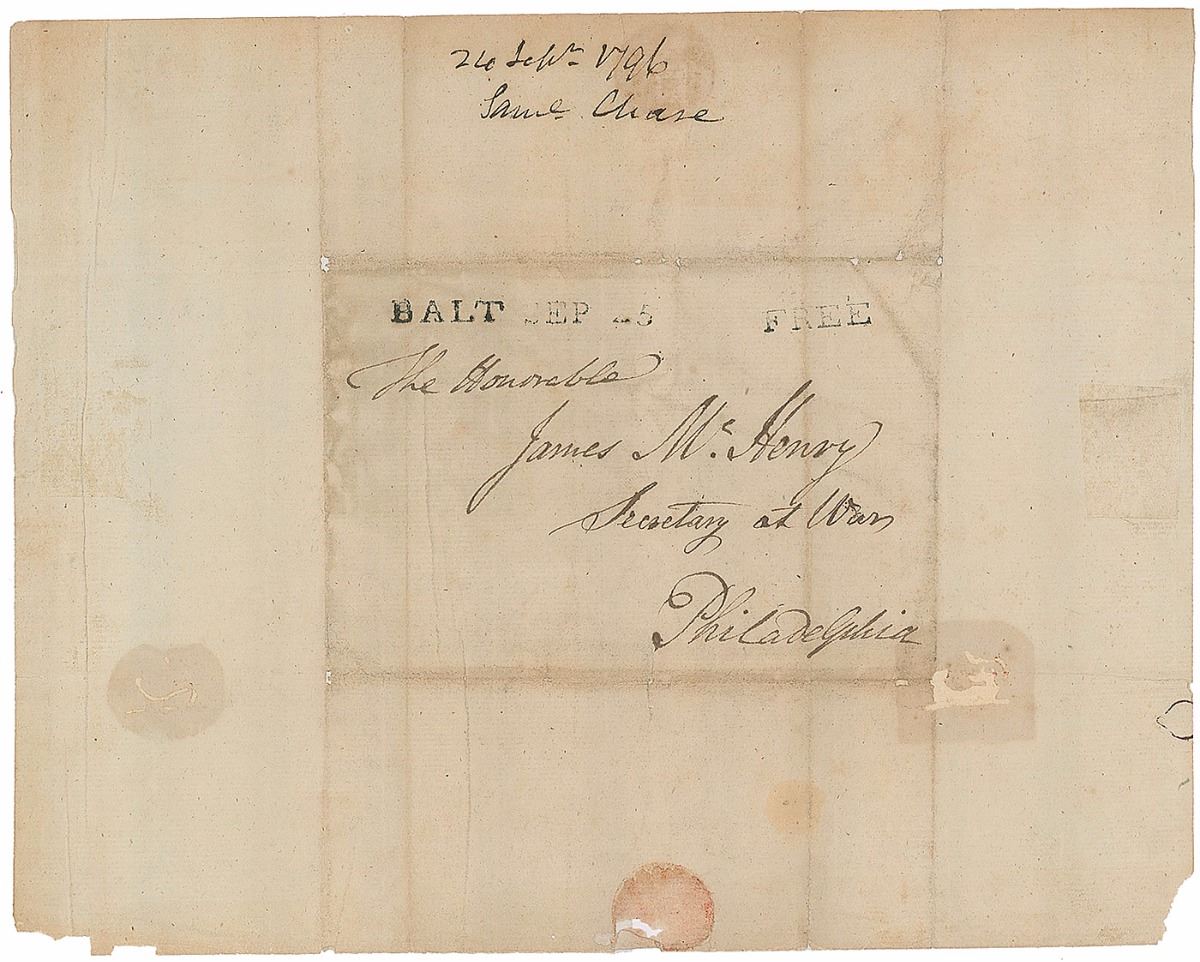 24 Sepr. 1796
Saml. Chase
BALT SEP 25 FREE
The Honorable
James Mc. Henry
Secretary at War
Philadelphia